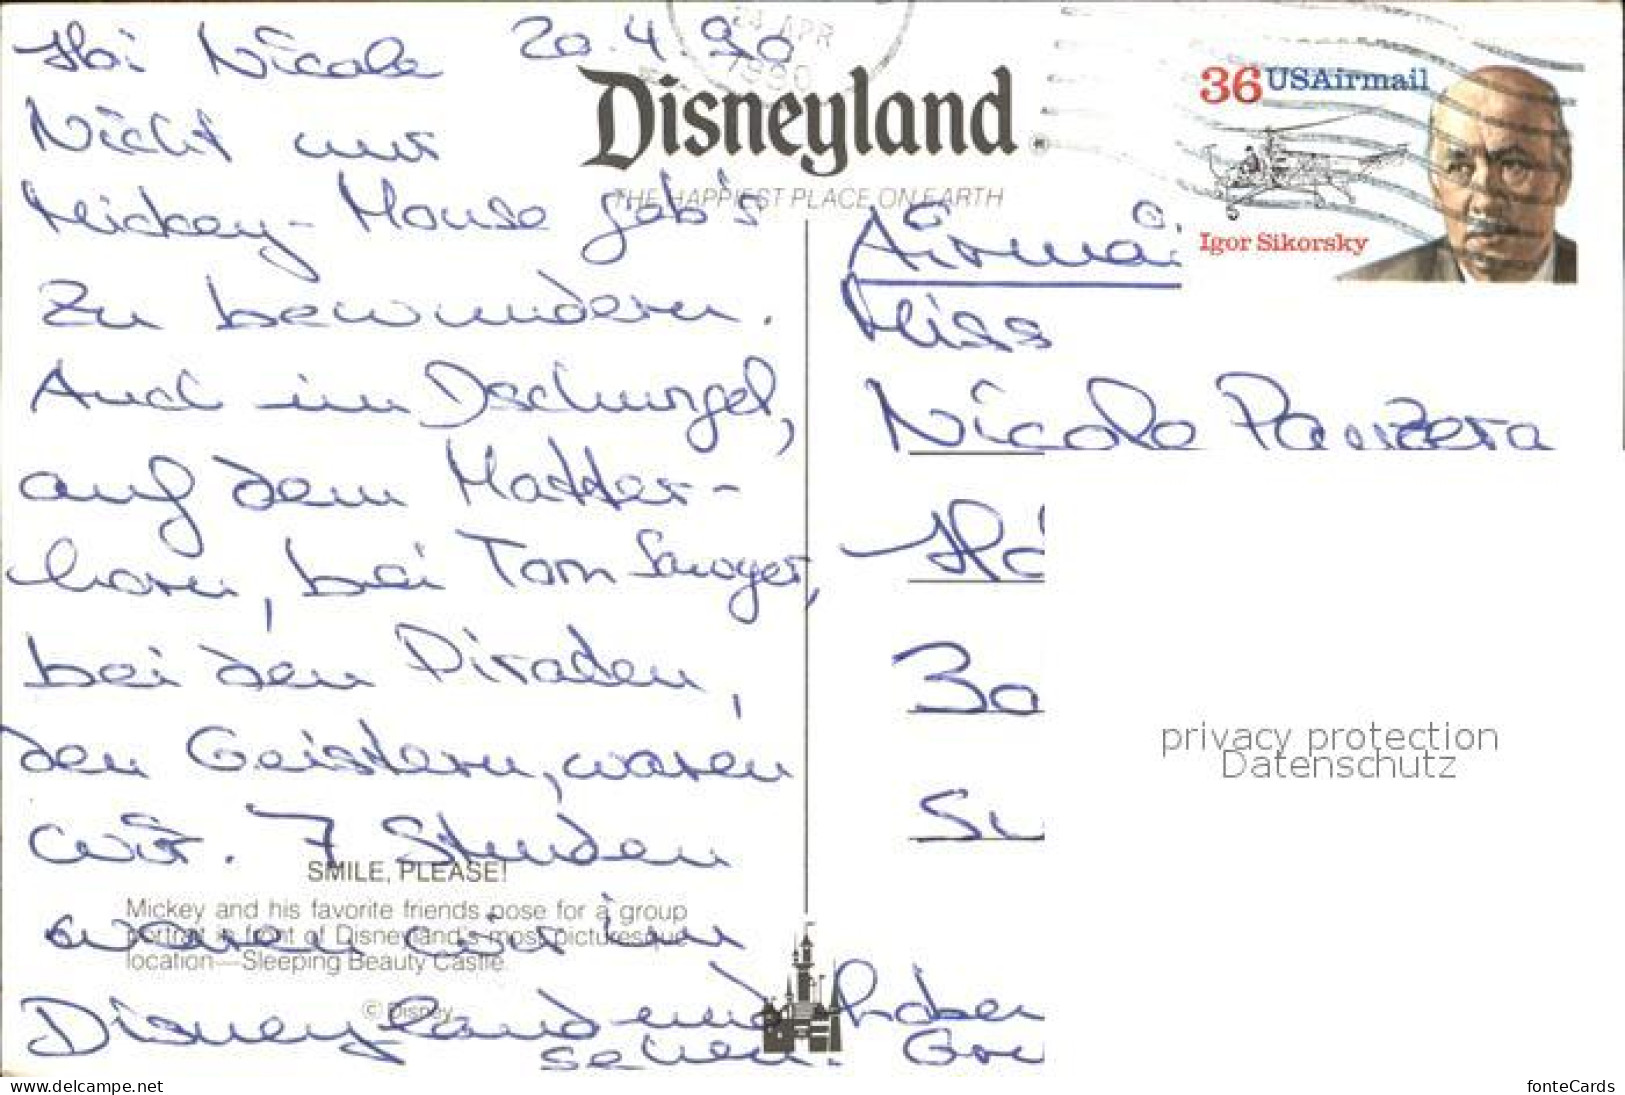 Hoi Nicole 20.4.90
Nicht nur
Mickey-Mouse gab's
zu bewundern.
Auch im Dschungel,
auf dem Matter-
horn, bei Tom Sawyer,
bei den Piraten,
den Geistern, waren
wir. 7 Stunden
waren wir in
Disneyland und haben
sehen.
24 APR
1990
Disneyland.
THE HAPPIEST PLACE ON EARTH
36 USAirmail
Igor Sikorsky
Airmai
Miss
Nicole Panzera
SMILE, PLEASE!
Mickey and his favorite friends pose for a group
portrait in front of Disneyland's most picturesque
location—Sleeping Beauty Castle.
© Disney
privacy protection
Datenschutz
www.delcampe.net
fonteCards